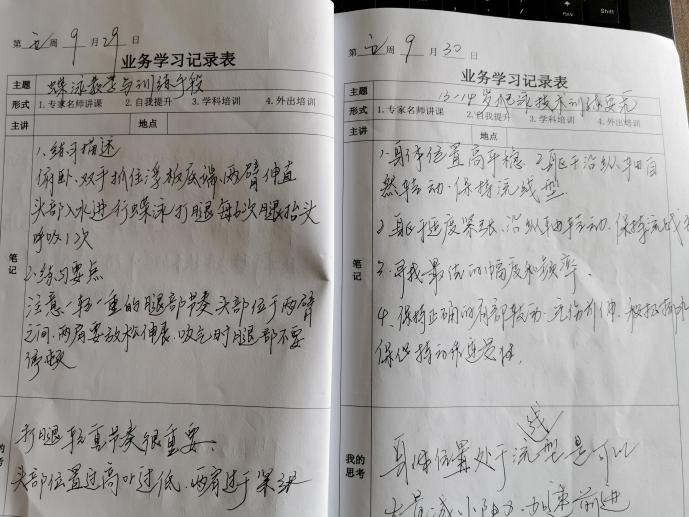 第 五 周 9 月 29 日
业务学习记录表
主题 蝶泳教学与训练手段
形式 1.专家名师讲课 2.自我提升 3.学科培训 4.外出培训
主讲 地点
笔记
1、练习描述
俯卧、双手抓住浮板底端、两臂伸直
头部入水进行蝶泳打腿每6次腿抬头
呼吸1次
2、练习要点
注意一轻一重的腿部节奏头部位于两臂
之间、两肩要放松伸展、吸气时腿部不要
停顿
打腿轻重节奏很重要、
头部位置过高or过低、两肩过于紧张
第 五 周 9 月 30 日
业务学习记录表
主题 13-14岁
形式 1.专家名师讲课 2.自我提升 3.学科培训 4.外出培训
主讲 地点
笔记
1、身体位置高平稳 2、身体沿纵轴自
然转动、保持流线型
沿纵轴转动、保持流线
3、寻找最佳的幅度和频率、
4、保持正确的肩部转动
保持动作连贯性、
我的
思考
身体位置处于流线型是可以